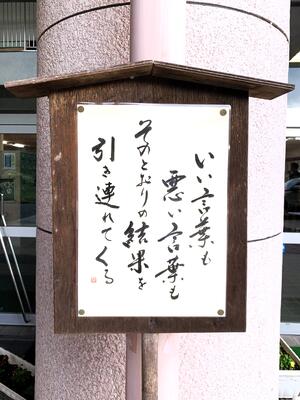 いい言葉も
悪い言葉も
そのとおりの結果を
引き連れてくる